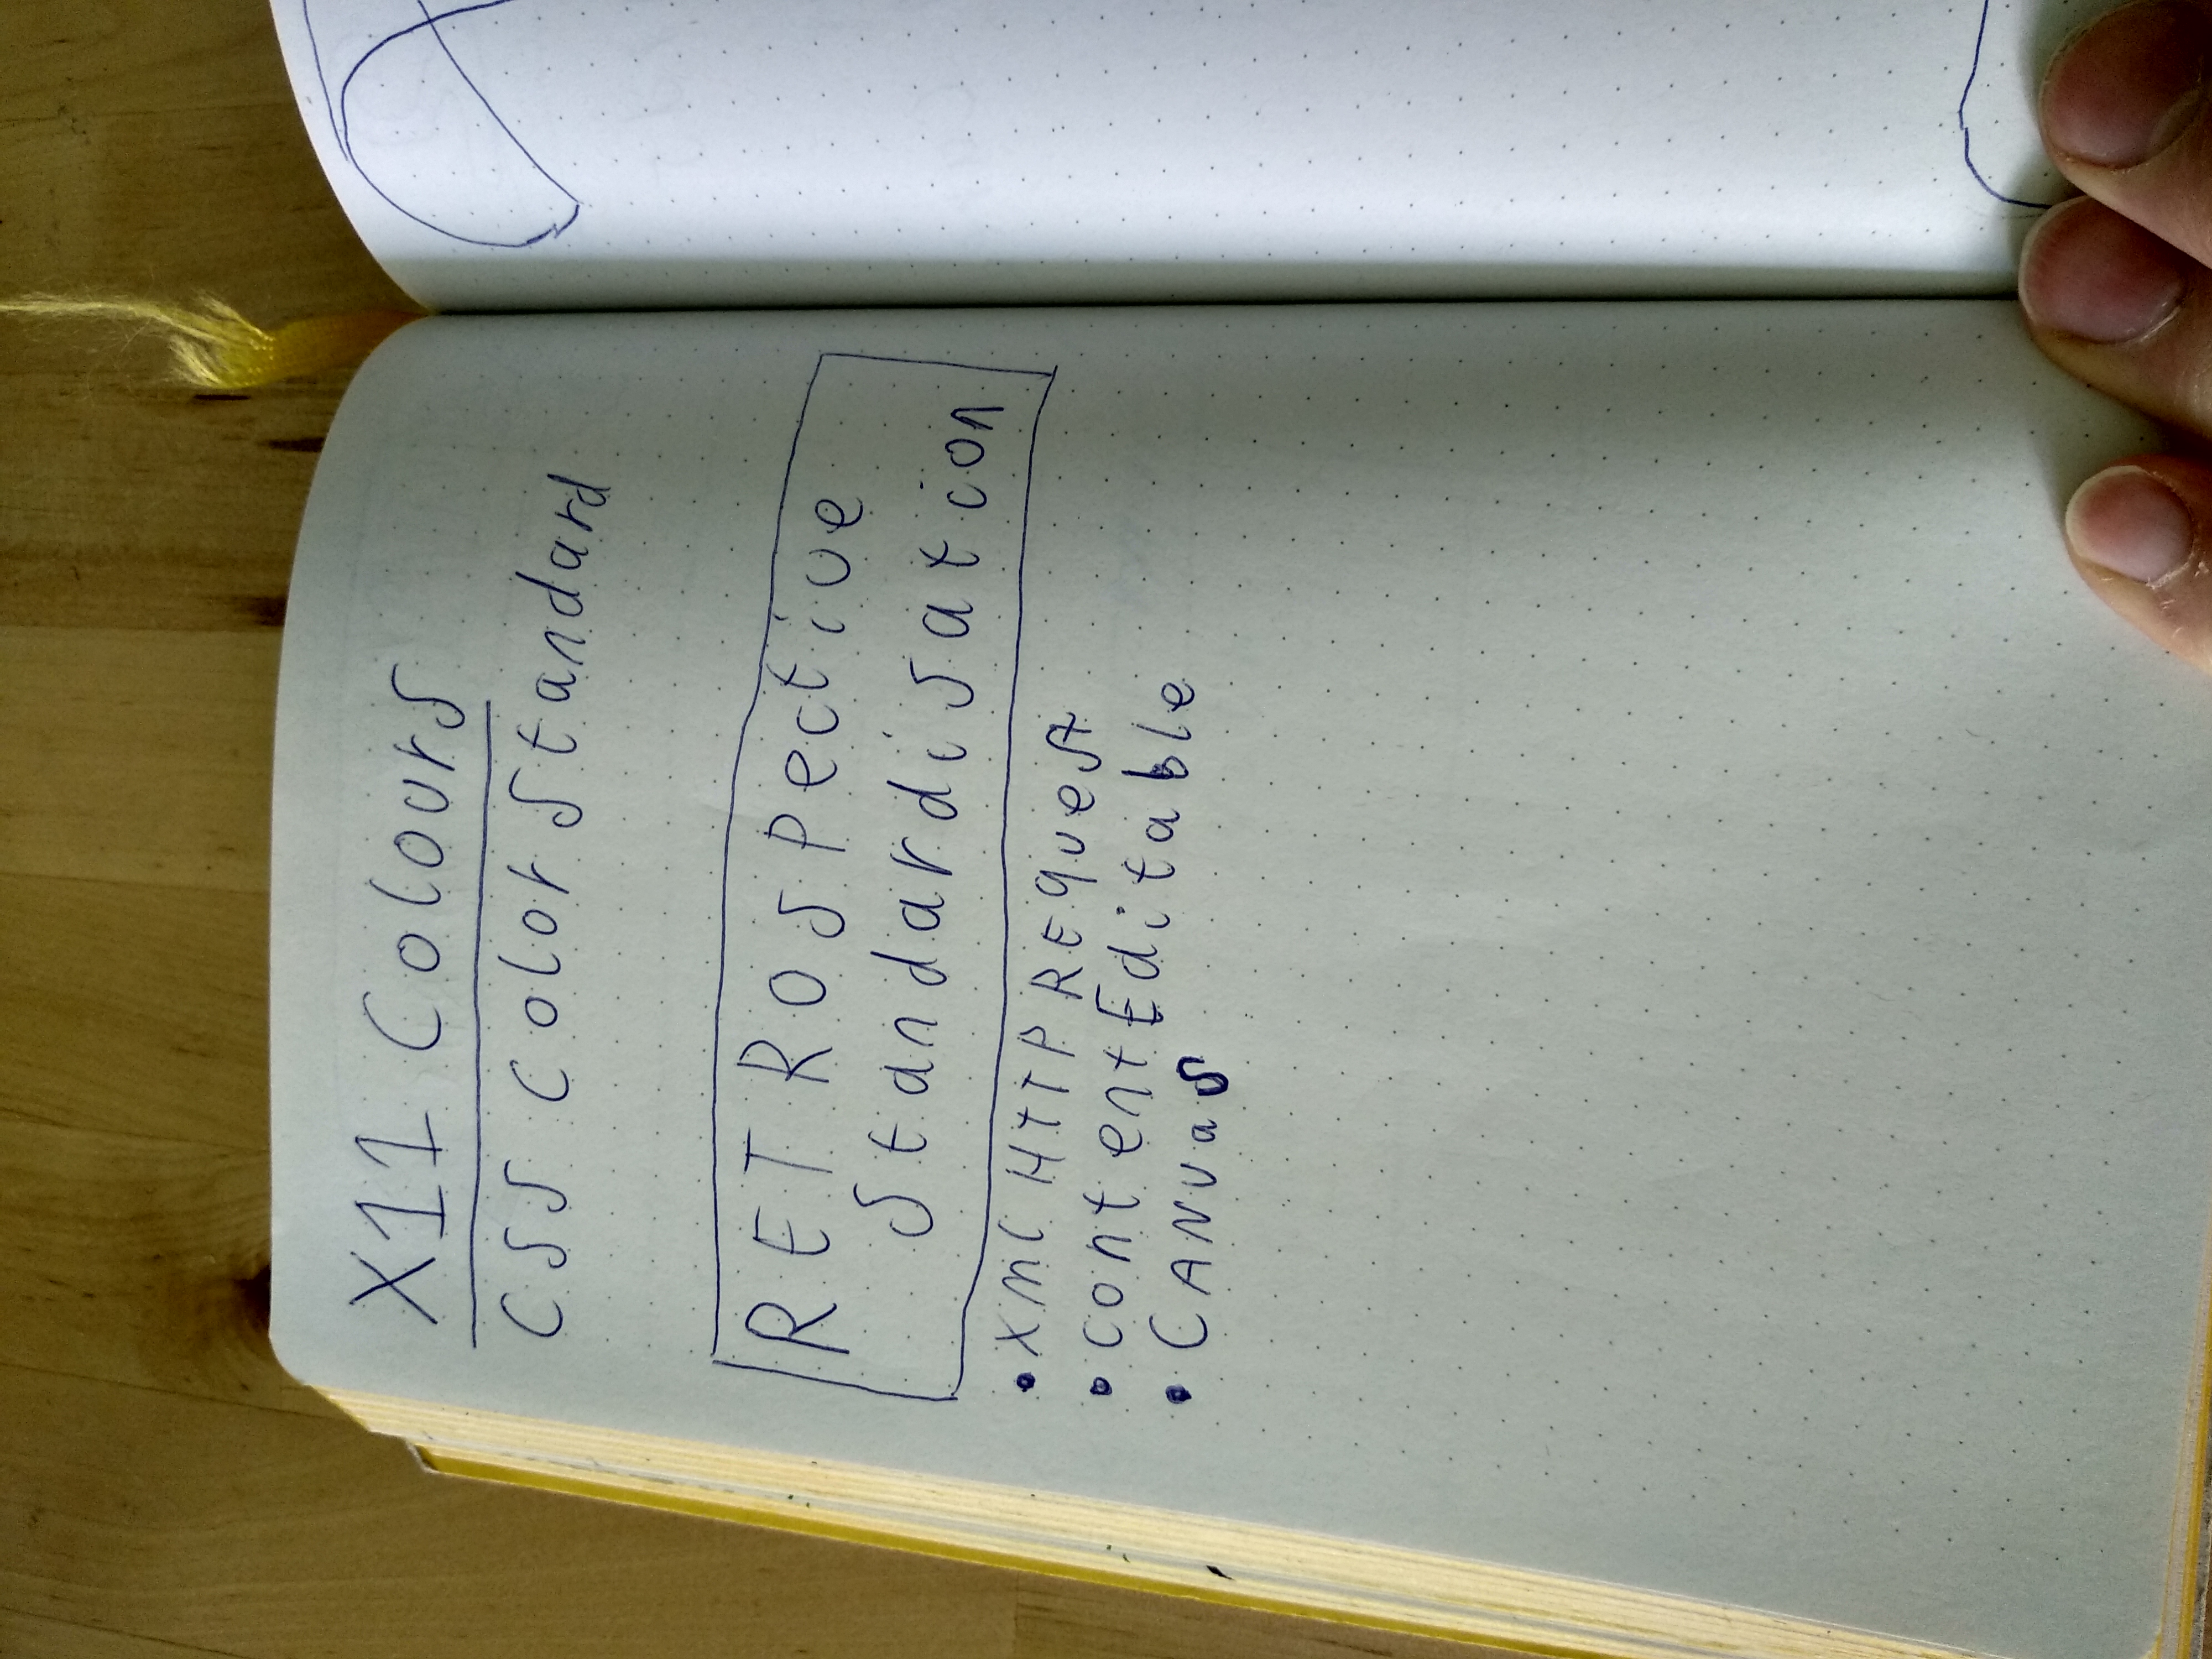 X11 Colours
CSS Color Standard
RETROspective
Standardisation
• XML HTTP REquest
• contentEditable
• CANvas